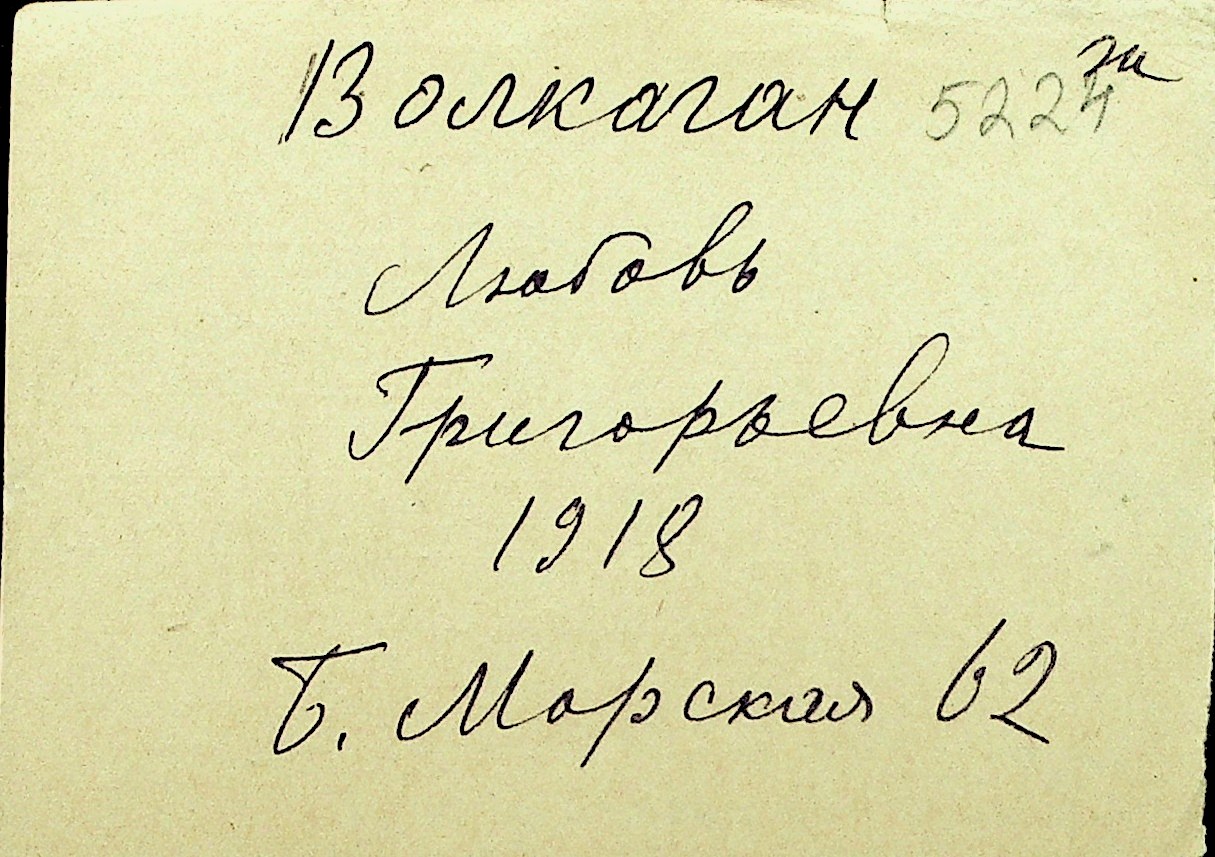 Волкаган 5224
Любовь
Григорьевна
1918
Б. Морская 62